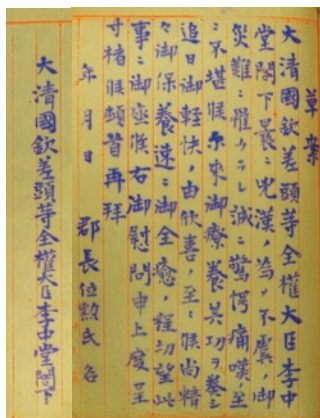 草案
大清國欽差頭等全權大臣李中
堂閣下曩ニ兇漢ノ為メ不虞ノ御
災難ニ罹ラレ誠ニ驚愕痛嘆ノ至
ニ不堪候尓来御療養其功ヲ奏シ
追日御軽快ノ由欣喜ノ至ニ候尚精
々御保養速ニ御全癒ノ程切望此
事ニ御座候右御慰問申上度呈
寸楮候頓首再拝
年月日 郡長位勲氏名
大清國欽差頭等全權大臣李中堂閣下